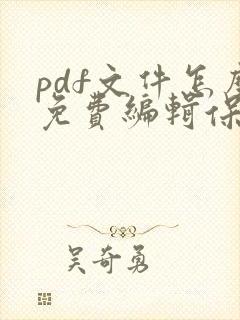 pdf文件怎
免費編輯保
吴奇勇